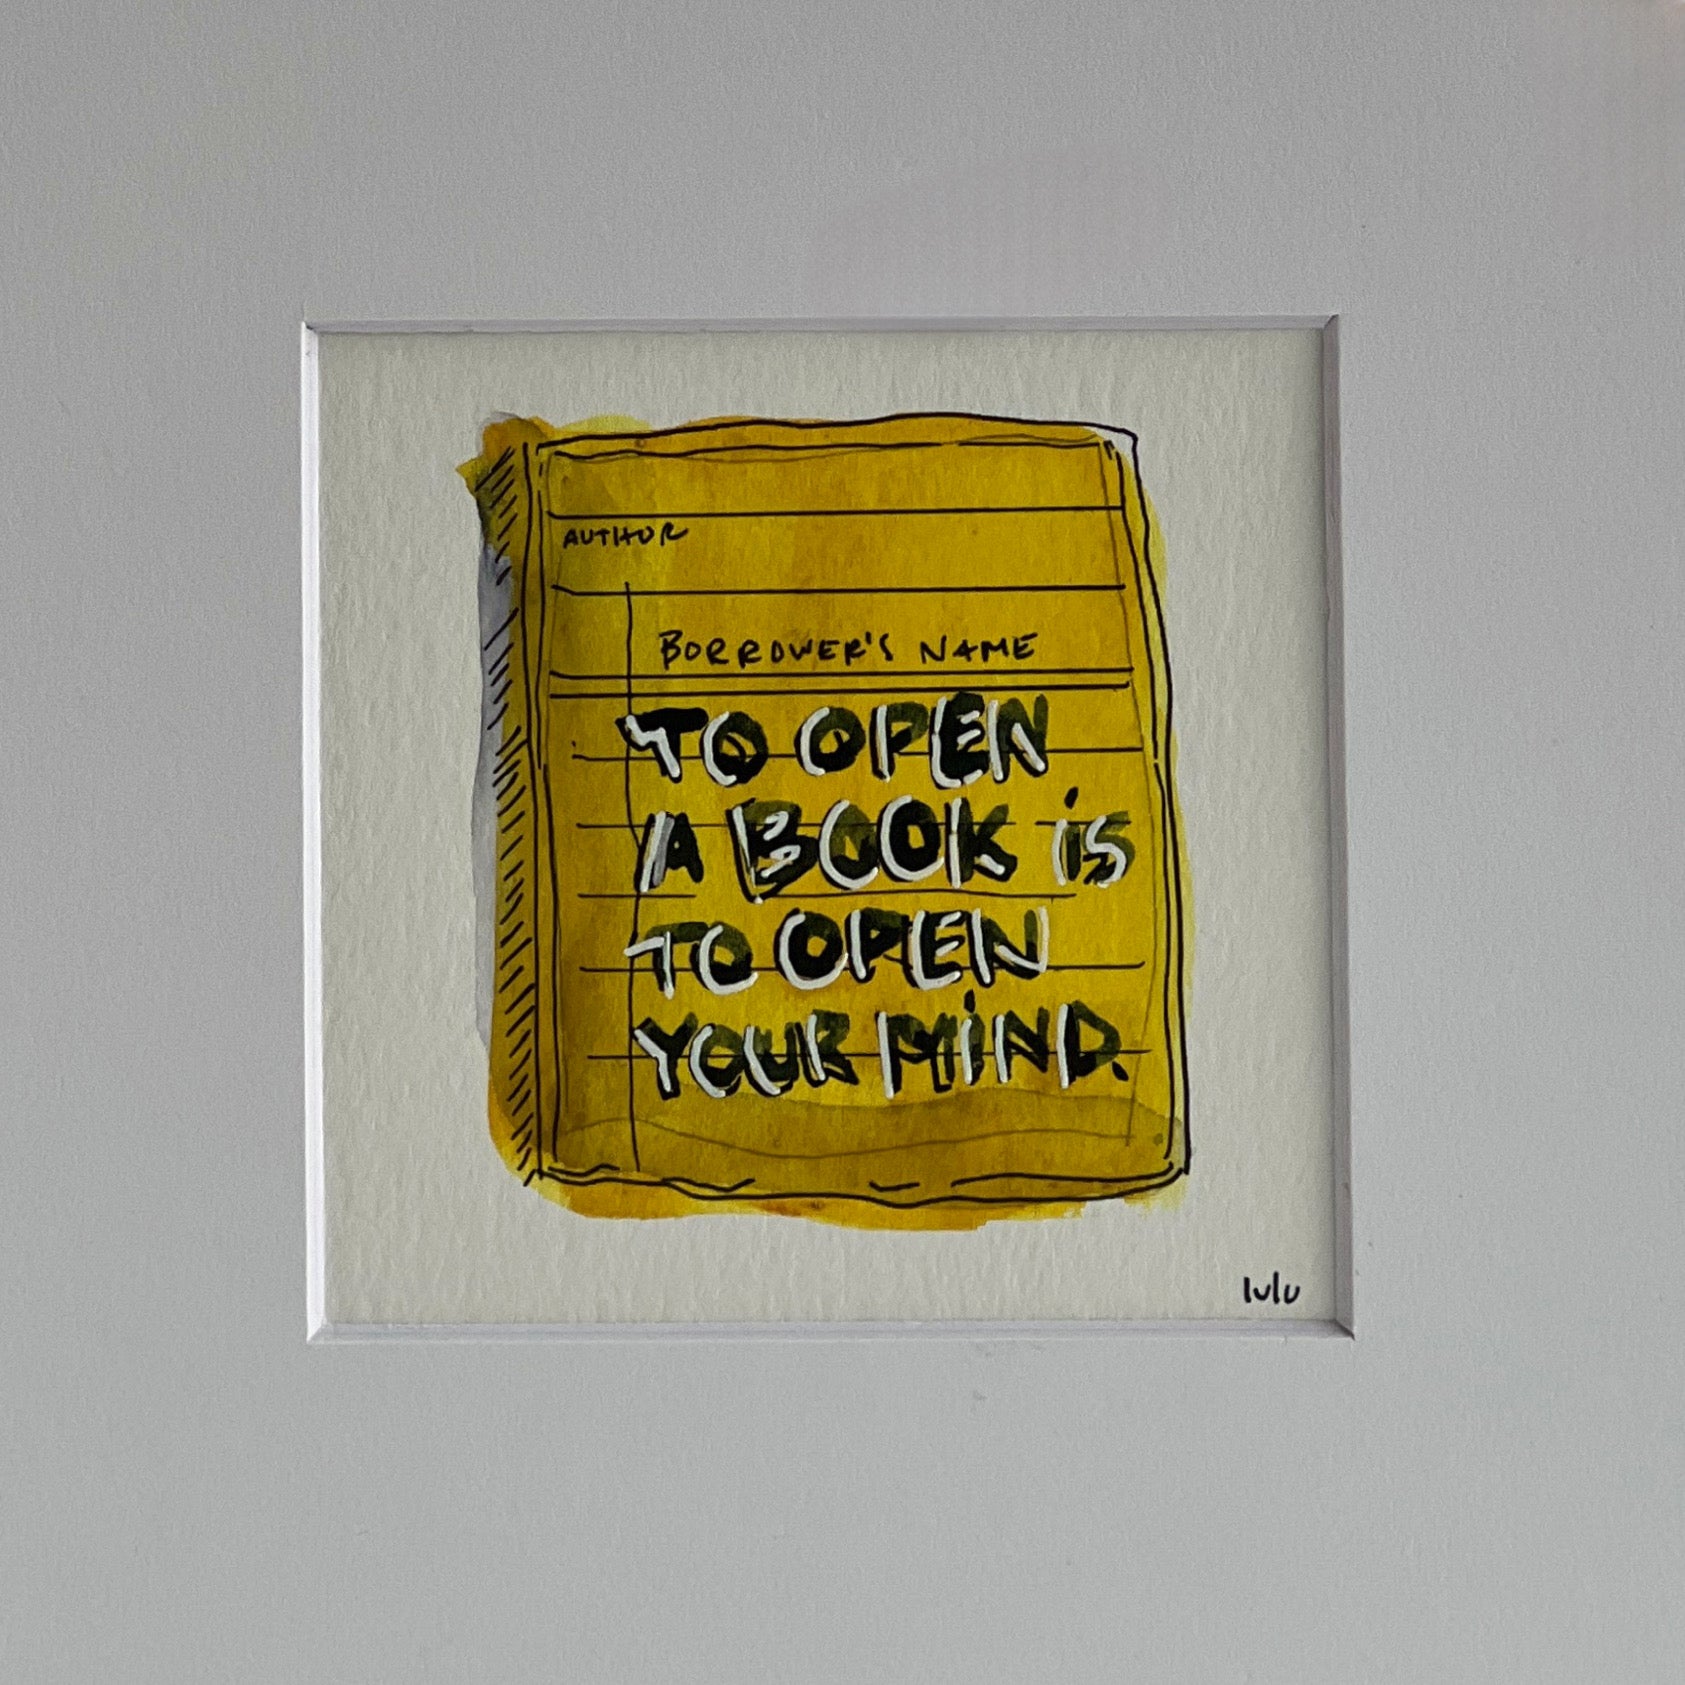 AUTHOR
BORROWER'S NAME
TO OPEN
A BOOK iS
TO OPEN
YOUR MiND.
lulu